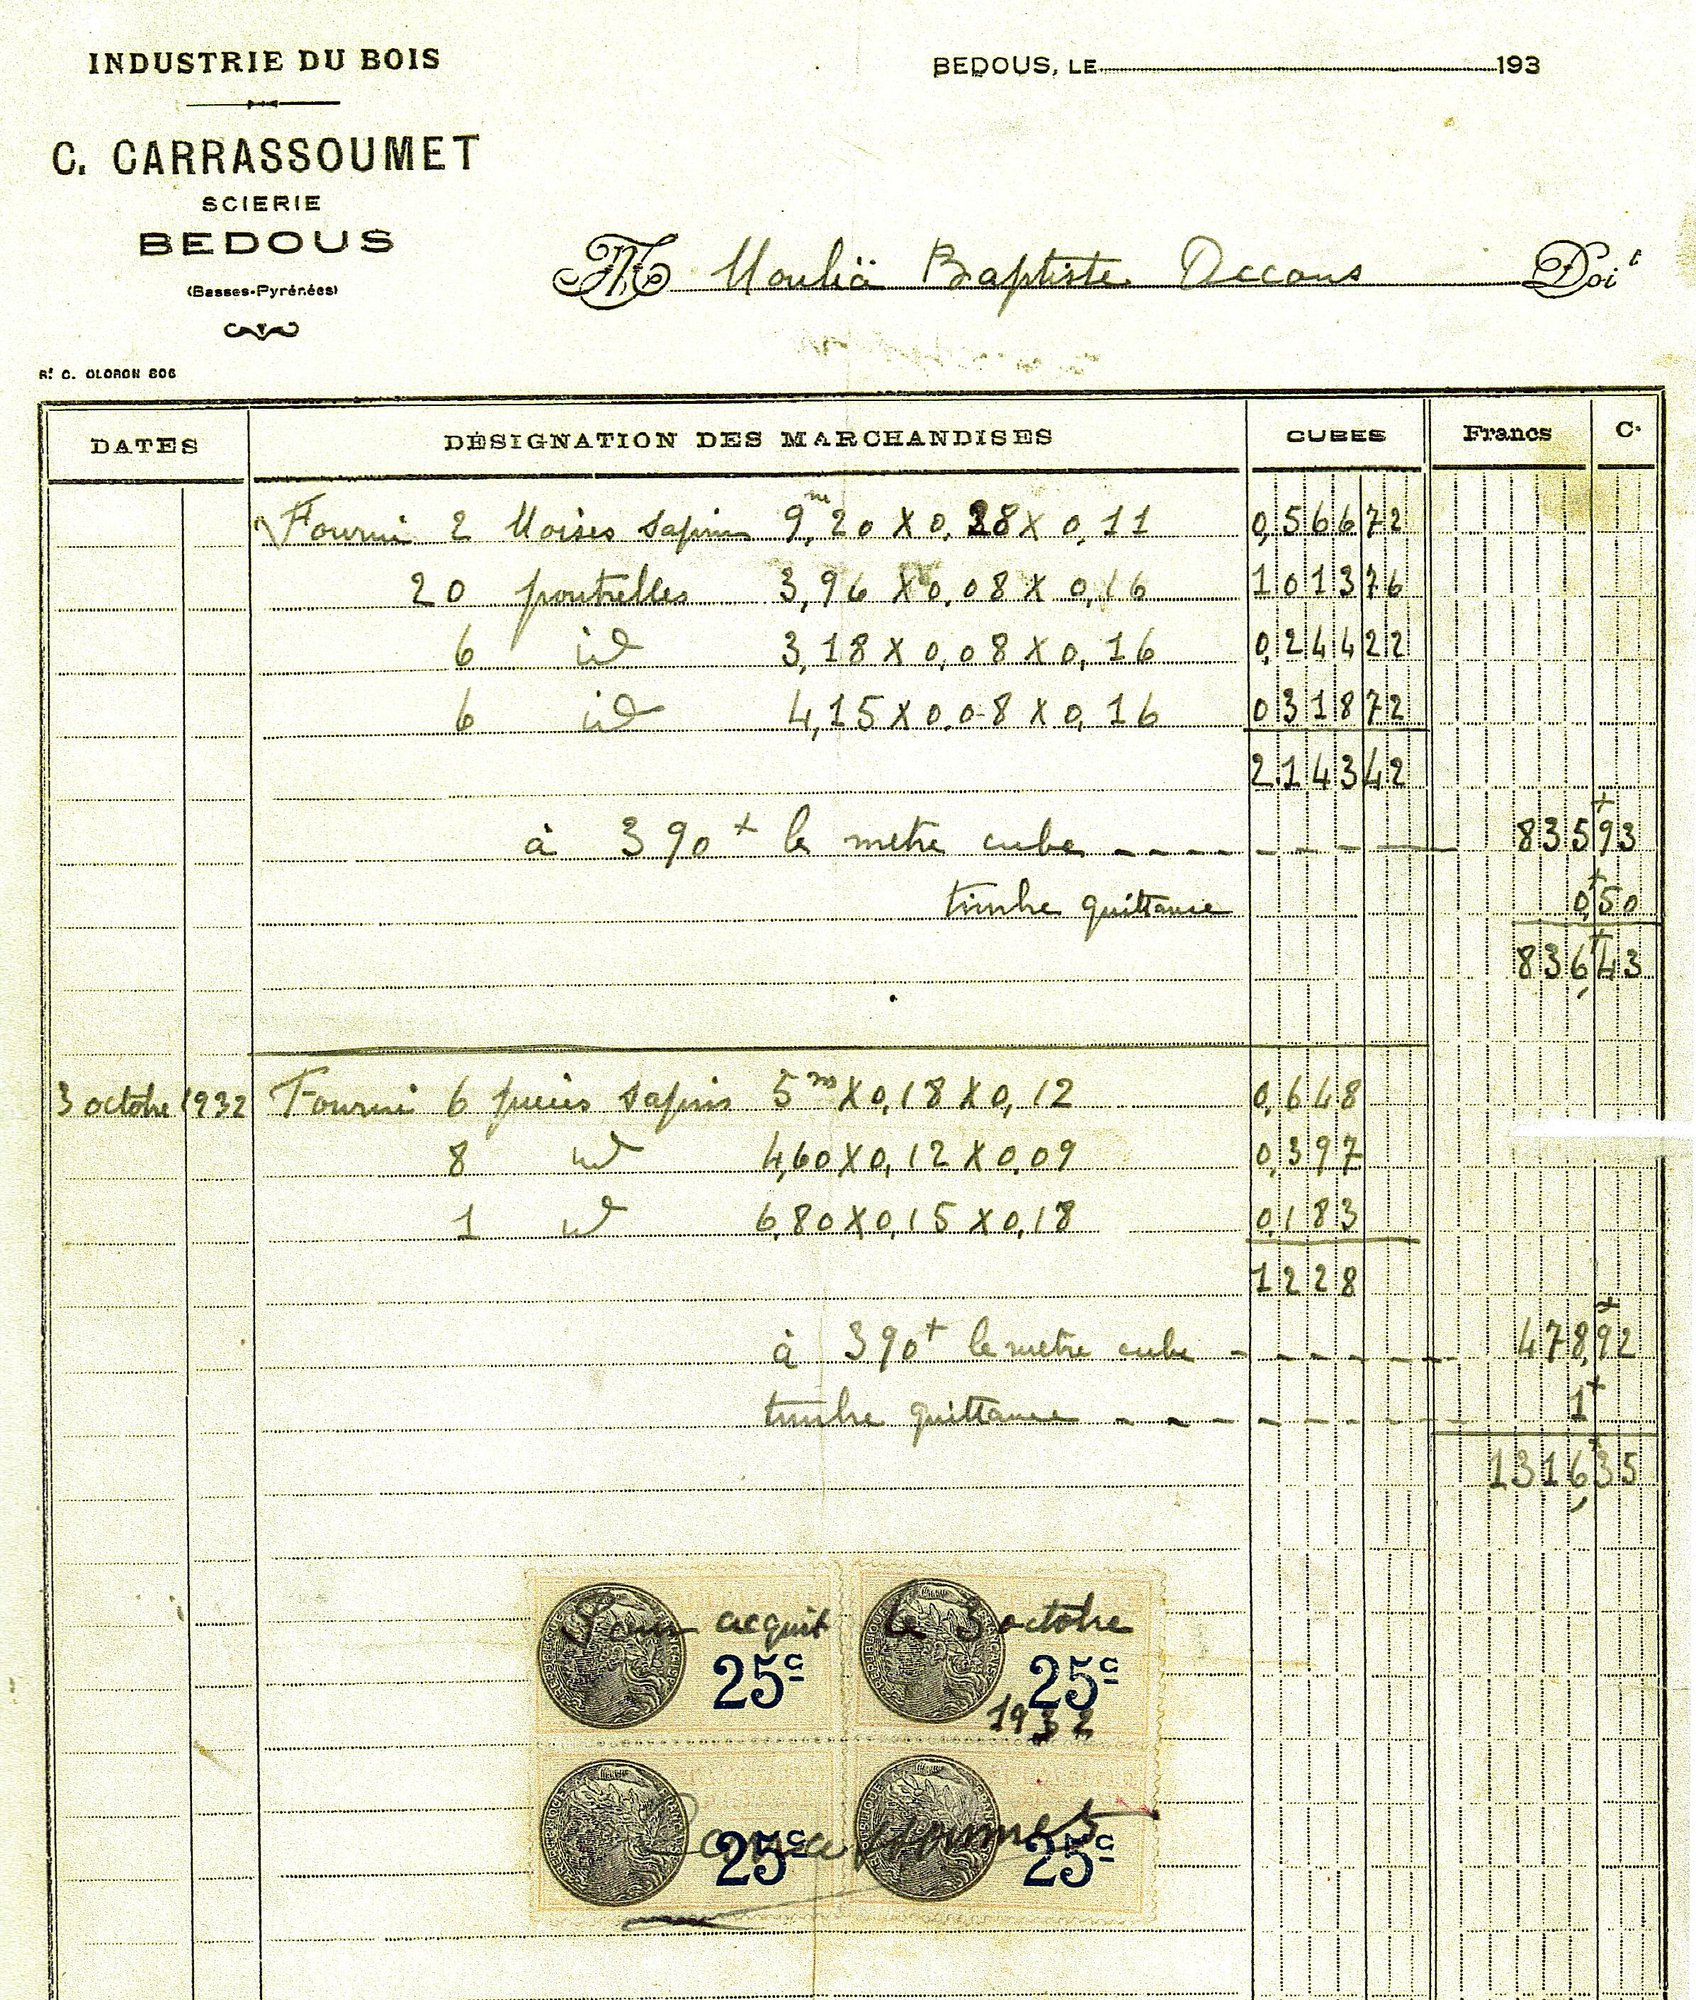 INDUSTRIE DU BOIS
BEDOUS, LE 193
C. CARRASSOUMET
SCIERIE
BEDOUS
(Basses-Pyrénées)
M Mouliä Baptiste Accous Doit
Rt C. OLORON 806
DATES DÉSIGNATION DES MARCHANDISES CUBES Francs C.
Fourni 2 Moises sapin 9m,20 X 0,28 X 0,11 0,56672
20 poutrelles 3,96 X 0,08 X 0,16 101376
6 id 3,18 X 0,08 X 0,16 0,24422
6 id 4,15 X 0,08 X 0,16 031872
2.14342
à 390+ le metre cube 835+93
timbre quittance 0,+50
836,+43
3 octobre 1932 Fourni 6 pieces sapins 5m X 0,18 X 0,12 0,648
8 id 4,60 X 0,12 X 0,09 0,397
1 id 6,80 X 0,15 X 0,18 0,183
1228
à 390+ le metre cube 478,+92
timbre quittance 1+
1316,+35
Pour acquit le 3 octobre
25c 25c
1932
Carrassoumet
25c 25c